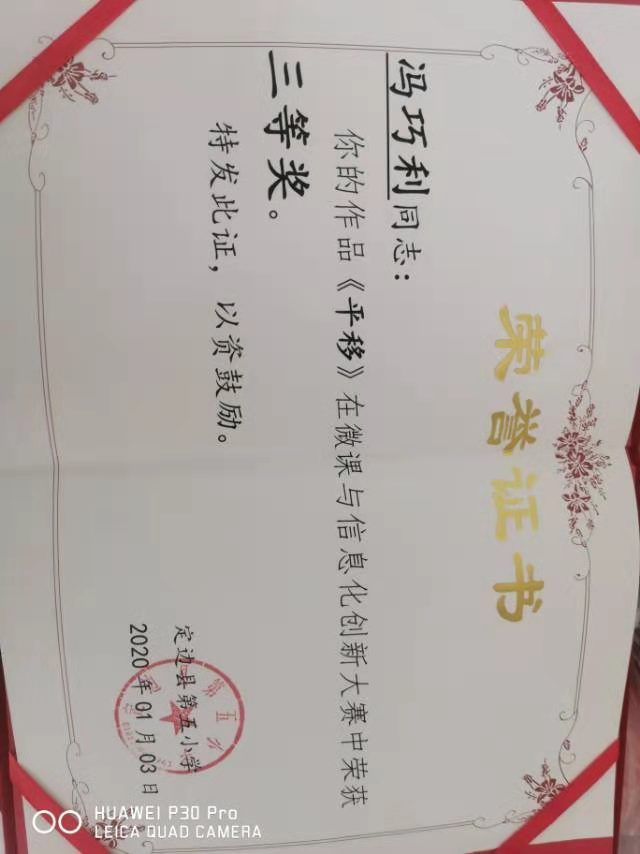 荣誉证书
冯巧利同志：
你的作品《平移》在微课与信息化创新大赛中荣获
三等奖。
特发此证，以资鼓励。
定边县第五小学
2020年01月03日
第五小
HUAWEI P30 Pro
LEICA QUAD CAMERA